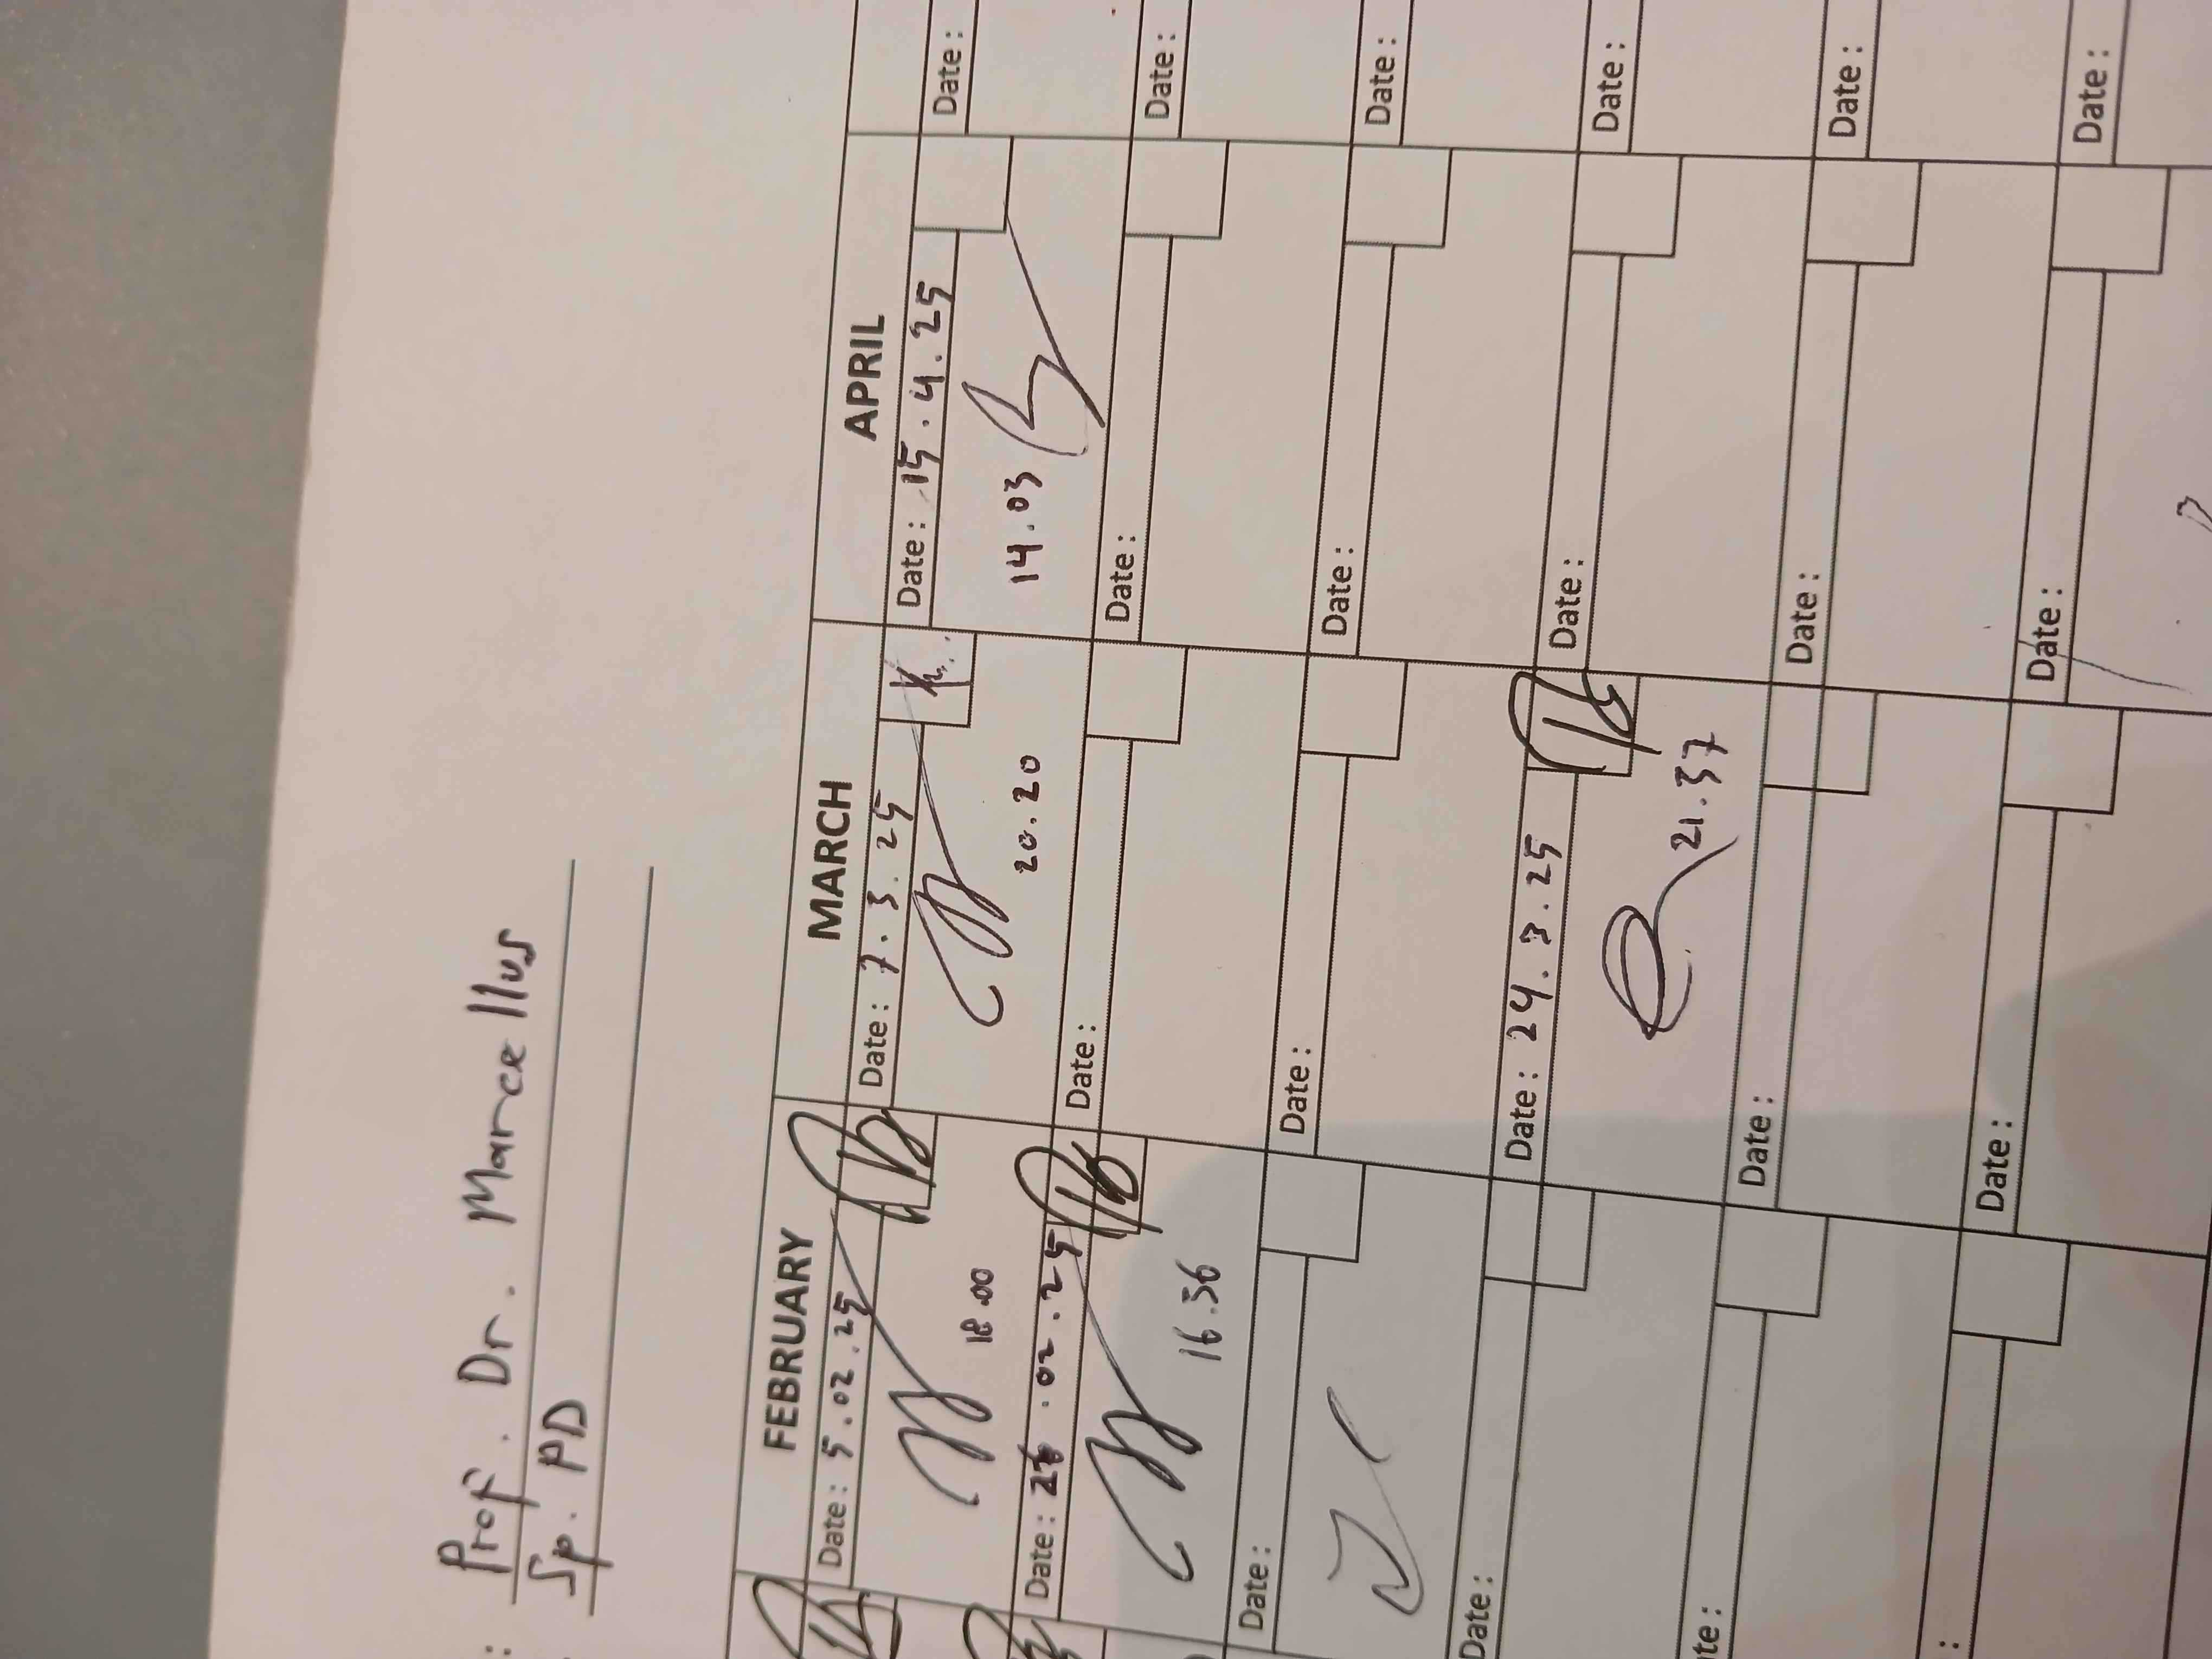 : Prof. Dr. Marcellus
Sp. PD
FEBRUARY MARCH APRIL
Date: 5.02.25 Date: 7.3.25 Date: 15.4.25 Date:
18.00 20.20 14.03
Date: .02.25 Date: Date: Date:
16.56
Date: Date: Date: Date:
Date: Date: 24.3.25 Date: Date:
21.37
te: Date: Date: Date:
: Date: Date: Date: